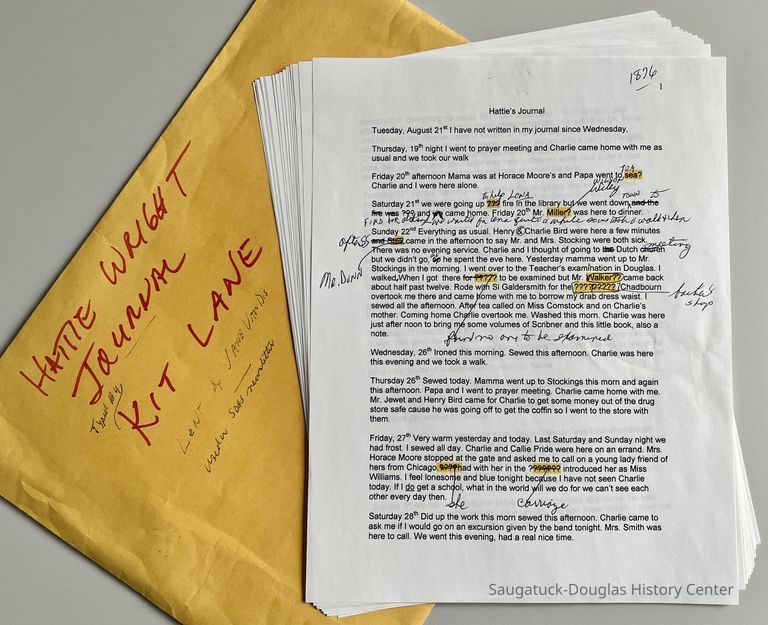 HATTIE WRIGHT
JOURNAL
Typed by
KIT LANE
LENT by JANE VAN DIS
used in SDHS newsletter
1876
1
Hattie's Journal
Tuesday, August 21st I have not written in my journal since Wednesday,
Thursday, 19th night I went to prayer meeting and Charlie came home with me as
usual and we took our walk
TEA
Friday 20th afternoon Mama was at Horace Moore's and Papa went to sea?
Charlie and I were here alone.
to help LONA
Wiley
TOWN to
Saturday 21st we were going up ??? fire in the library but we went down and the
fire was ??? and came home. Friday 20th Mr. Miller? was here to dinner.
Sunday 22nd Everything as usual. Henry & Charlie Bird were here a few minutes
after
and came in the afternoon to say Mr. and Mrs. Stocking were both sick.
meeting
There was no evening service. Charlie and I thought of going to the Dutch church
but we didn't go, so he spent the eve here. Yesterday mamma went up to Mr.
Mr. Dunn
Stockings in the morning. I went over to the Teacher's examination in Douglas. I
walked. When I got there for ???? to be examined but Mr. Walker?? came back
about half past twelve. Rode with Si Galdersmith for the ????????? Chadbourn
barber's
shop
overtook me there and came home with me to borrow my drab dress waist. I
sewed all the afternoon. After tea called on Miss Comstock and on Charlie's
mother. Coming home Charlie overtook me. Washed this morn. Charlie was here
just after noon to bring me some volumes of Scribner and this little book, also a
note.
found no one to be examined
Wednesday, 26th Ironed this morning. Sewed this afternoon. Charlie was here
this evening and we took a walk.
Thursday 26th Sewed today. Mamma went up to Stockings this morn and again
this afternoon. Papa and I went to prayer meeting. Charlie came home with me.
Mr. Jewet and Henry Bird came for Charlie to get some money out of the drug
store safe cause he was going off to get the coffin so I went to the store with
them.
Friday, 27th Very warm yesterday and today. Last Saturday and Sunday night we
had frost. I sewed all day. Charlie and Callie Pride were here on an errand. Mrs.
Horace Moore stopped at the gate and asked me to call on a young lady friend of
hers from Chicago ???? had with her in the ??????? introduced her as Miss
Williams. I feel lonesome and blue tonight because I have not seen Charlie
today. If I do get a school, what in the world will we do for we can't see each
other every day then.
she
carriage
Saturday 28th Did up the work this morn sewed this afternoon. Charlie came to
ask me if I would go on an excursion given by the band tonight. Mrs. Smith was
here to call. We went this evening, had a real nice time.
Saugatuck-Douglas History Center